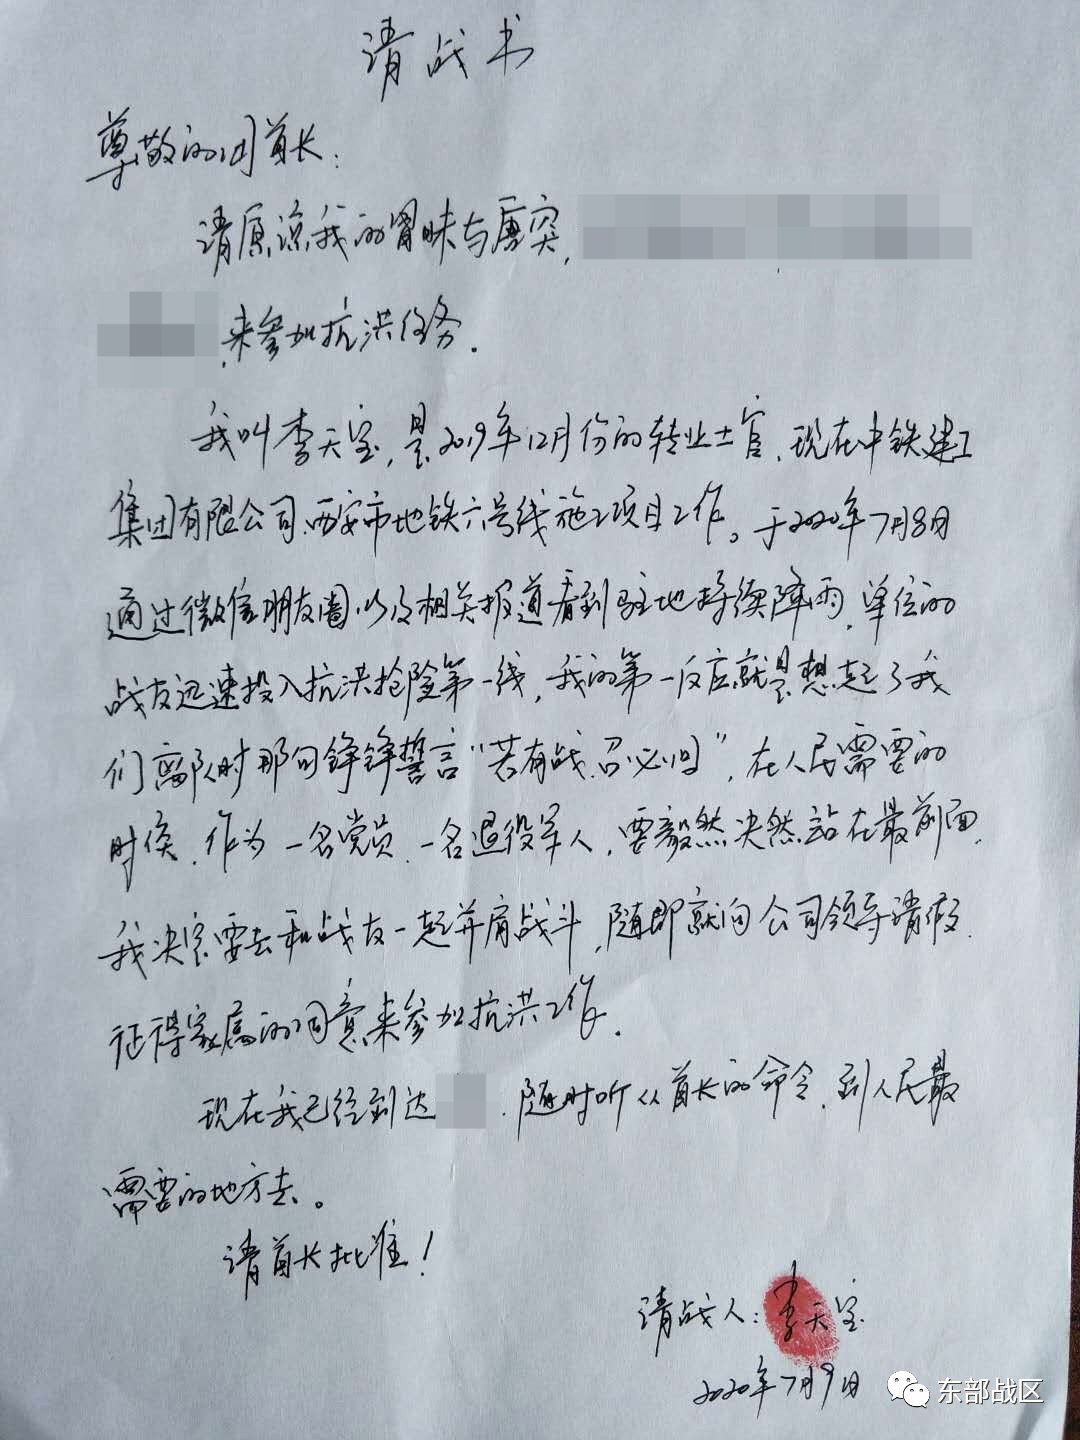 请战书
尊敬的团首长：
请原谅我的冒昧与唐突，
来参加抗洪任务.
我叫李天宝，是2019年12月份的转业士官，现在中铁建工
集团有限公司、西安市地铁六号线施工项目工作。于2020年7月8日
通过微信朋友圈以及相关报道看到驻地持续降雨，单位的
战友迅速投入抗洪抢险第一线，我的第一反应就是想起了我
们离队时那句铮铮誓言“若有战，召必回”，在人民需要的
时侯，作为一名党员、一名退役军人，要毅然决然站在最前面，
我决定要去和战友一起并肩战斗，随即就向公司领导请假，
征得家属的同意来参加抗洪工作.
现在我已经到达，随时听从首长的命令，到人民最
需要的地方去。
请首长批准！
请战人：李天宝
2020年7月9日
东部战区